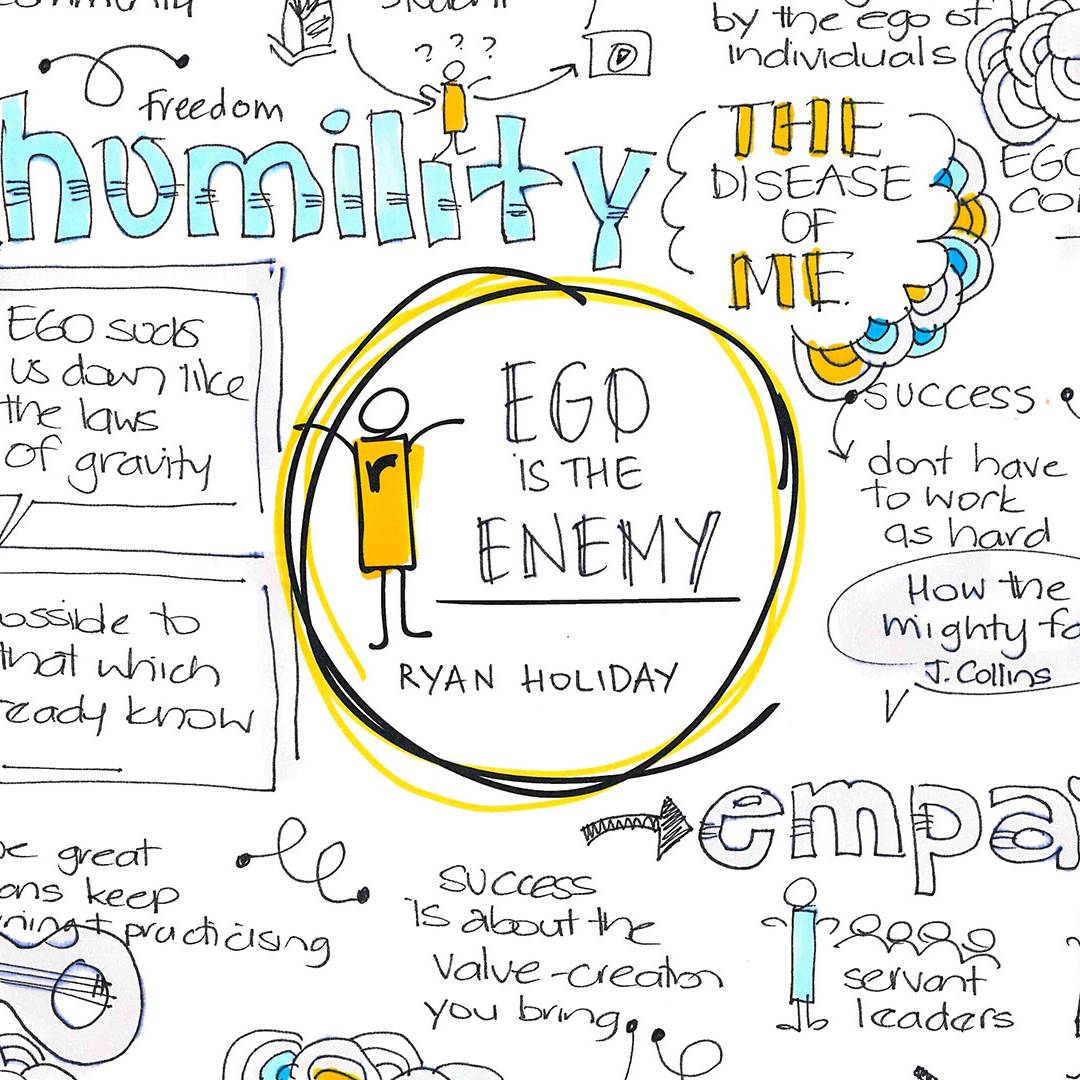 by the ego of
individuals
? ? ?
freedom
humility
THE
DISEASE
OF
ME.
EGO
EGO sucks
us down like
the laws
of gravity
EGO
IS THE
ENEMY
r
RYAN HOLIDAY
success
dont have
to work
as hard
How the
mighty
J. Collins
possible to
that which
know
great
keep
practicising
success
is about the
value-creation
you bring
empa
servant
leaders